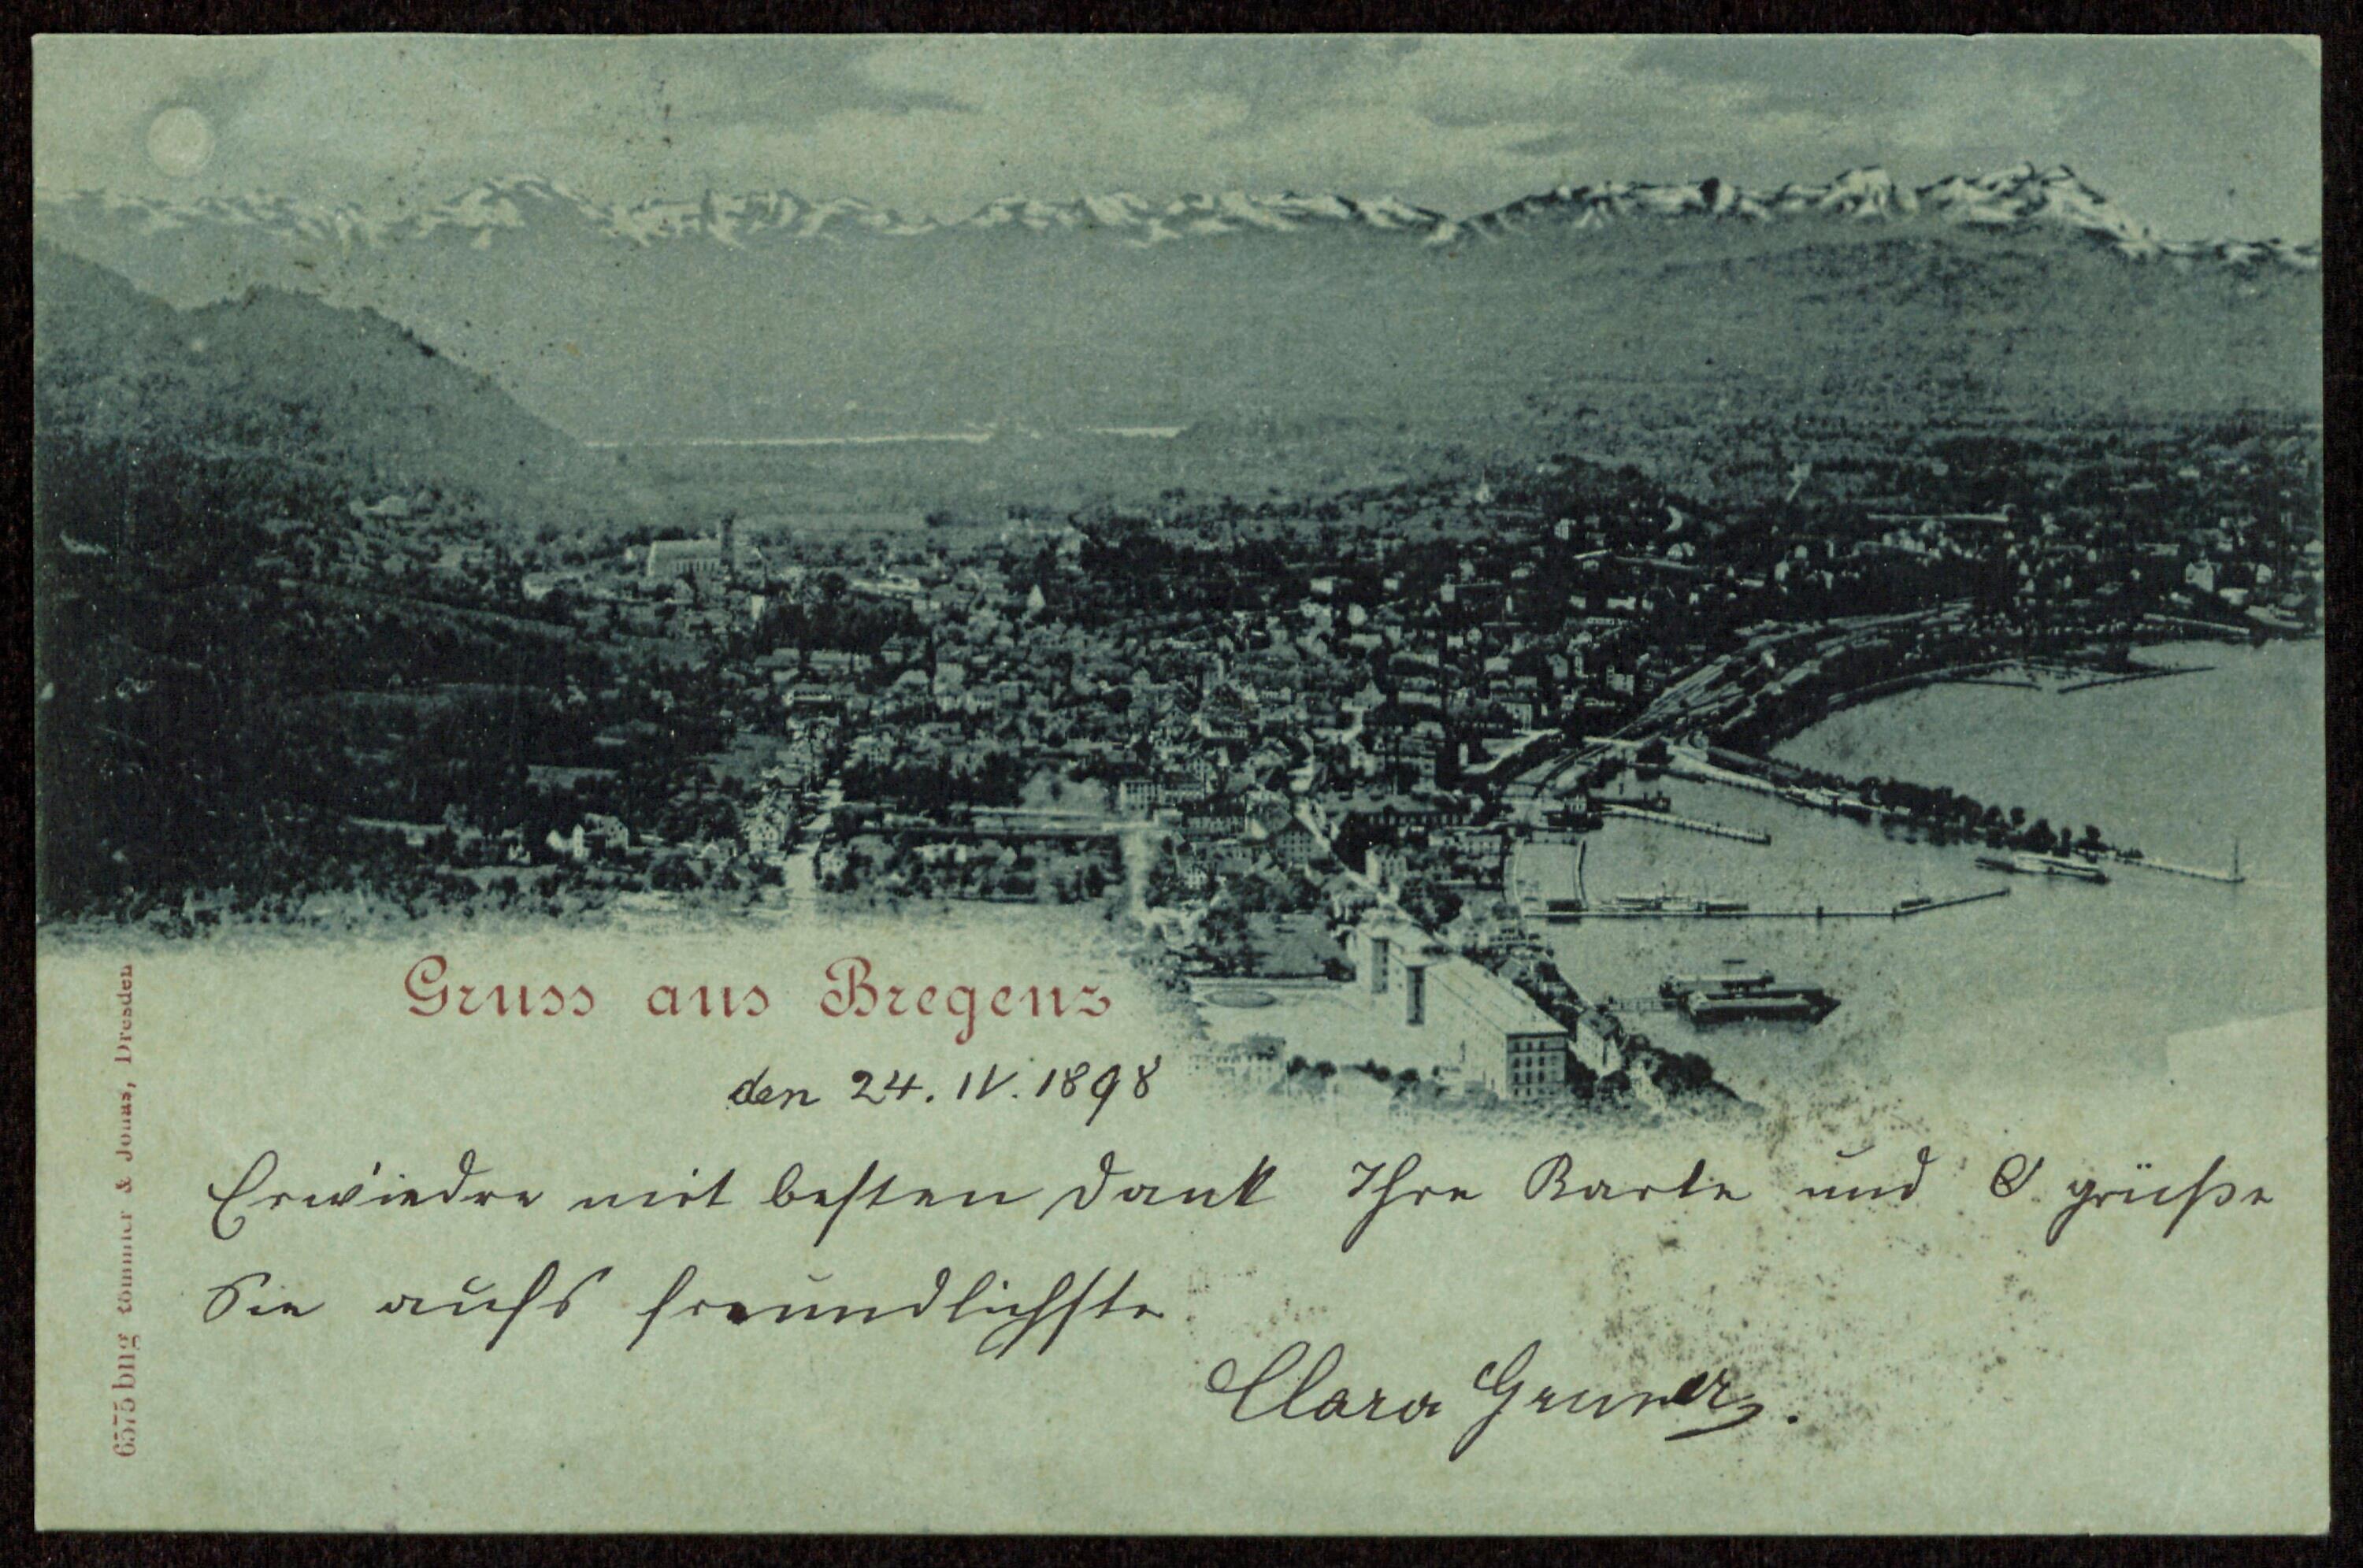 Gruss aus Bregenz
den 24. IV. 1898
Erwiedre mit besten Dank Ihre Karte und grüße
Sie aufs freundlichste
Clara
6575 bng Römmler & Jonas, Dresden